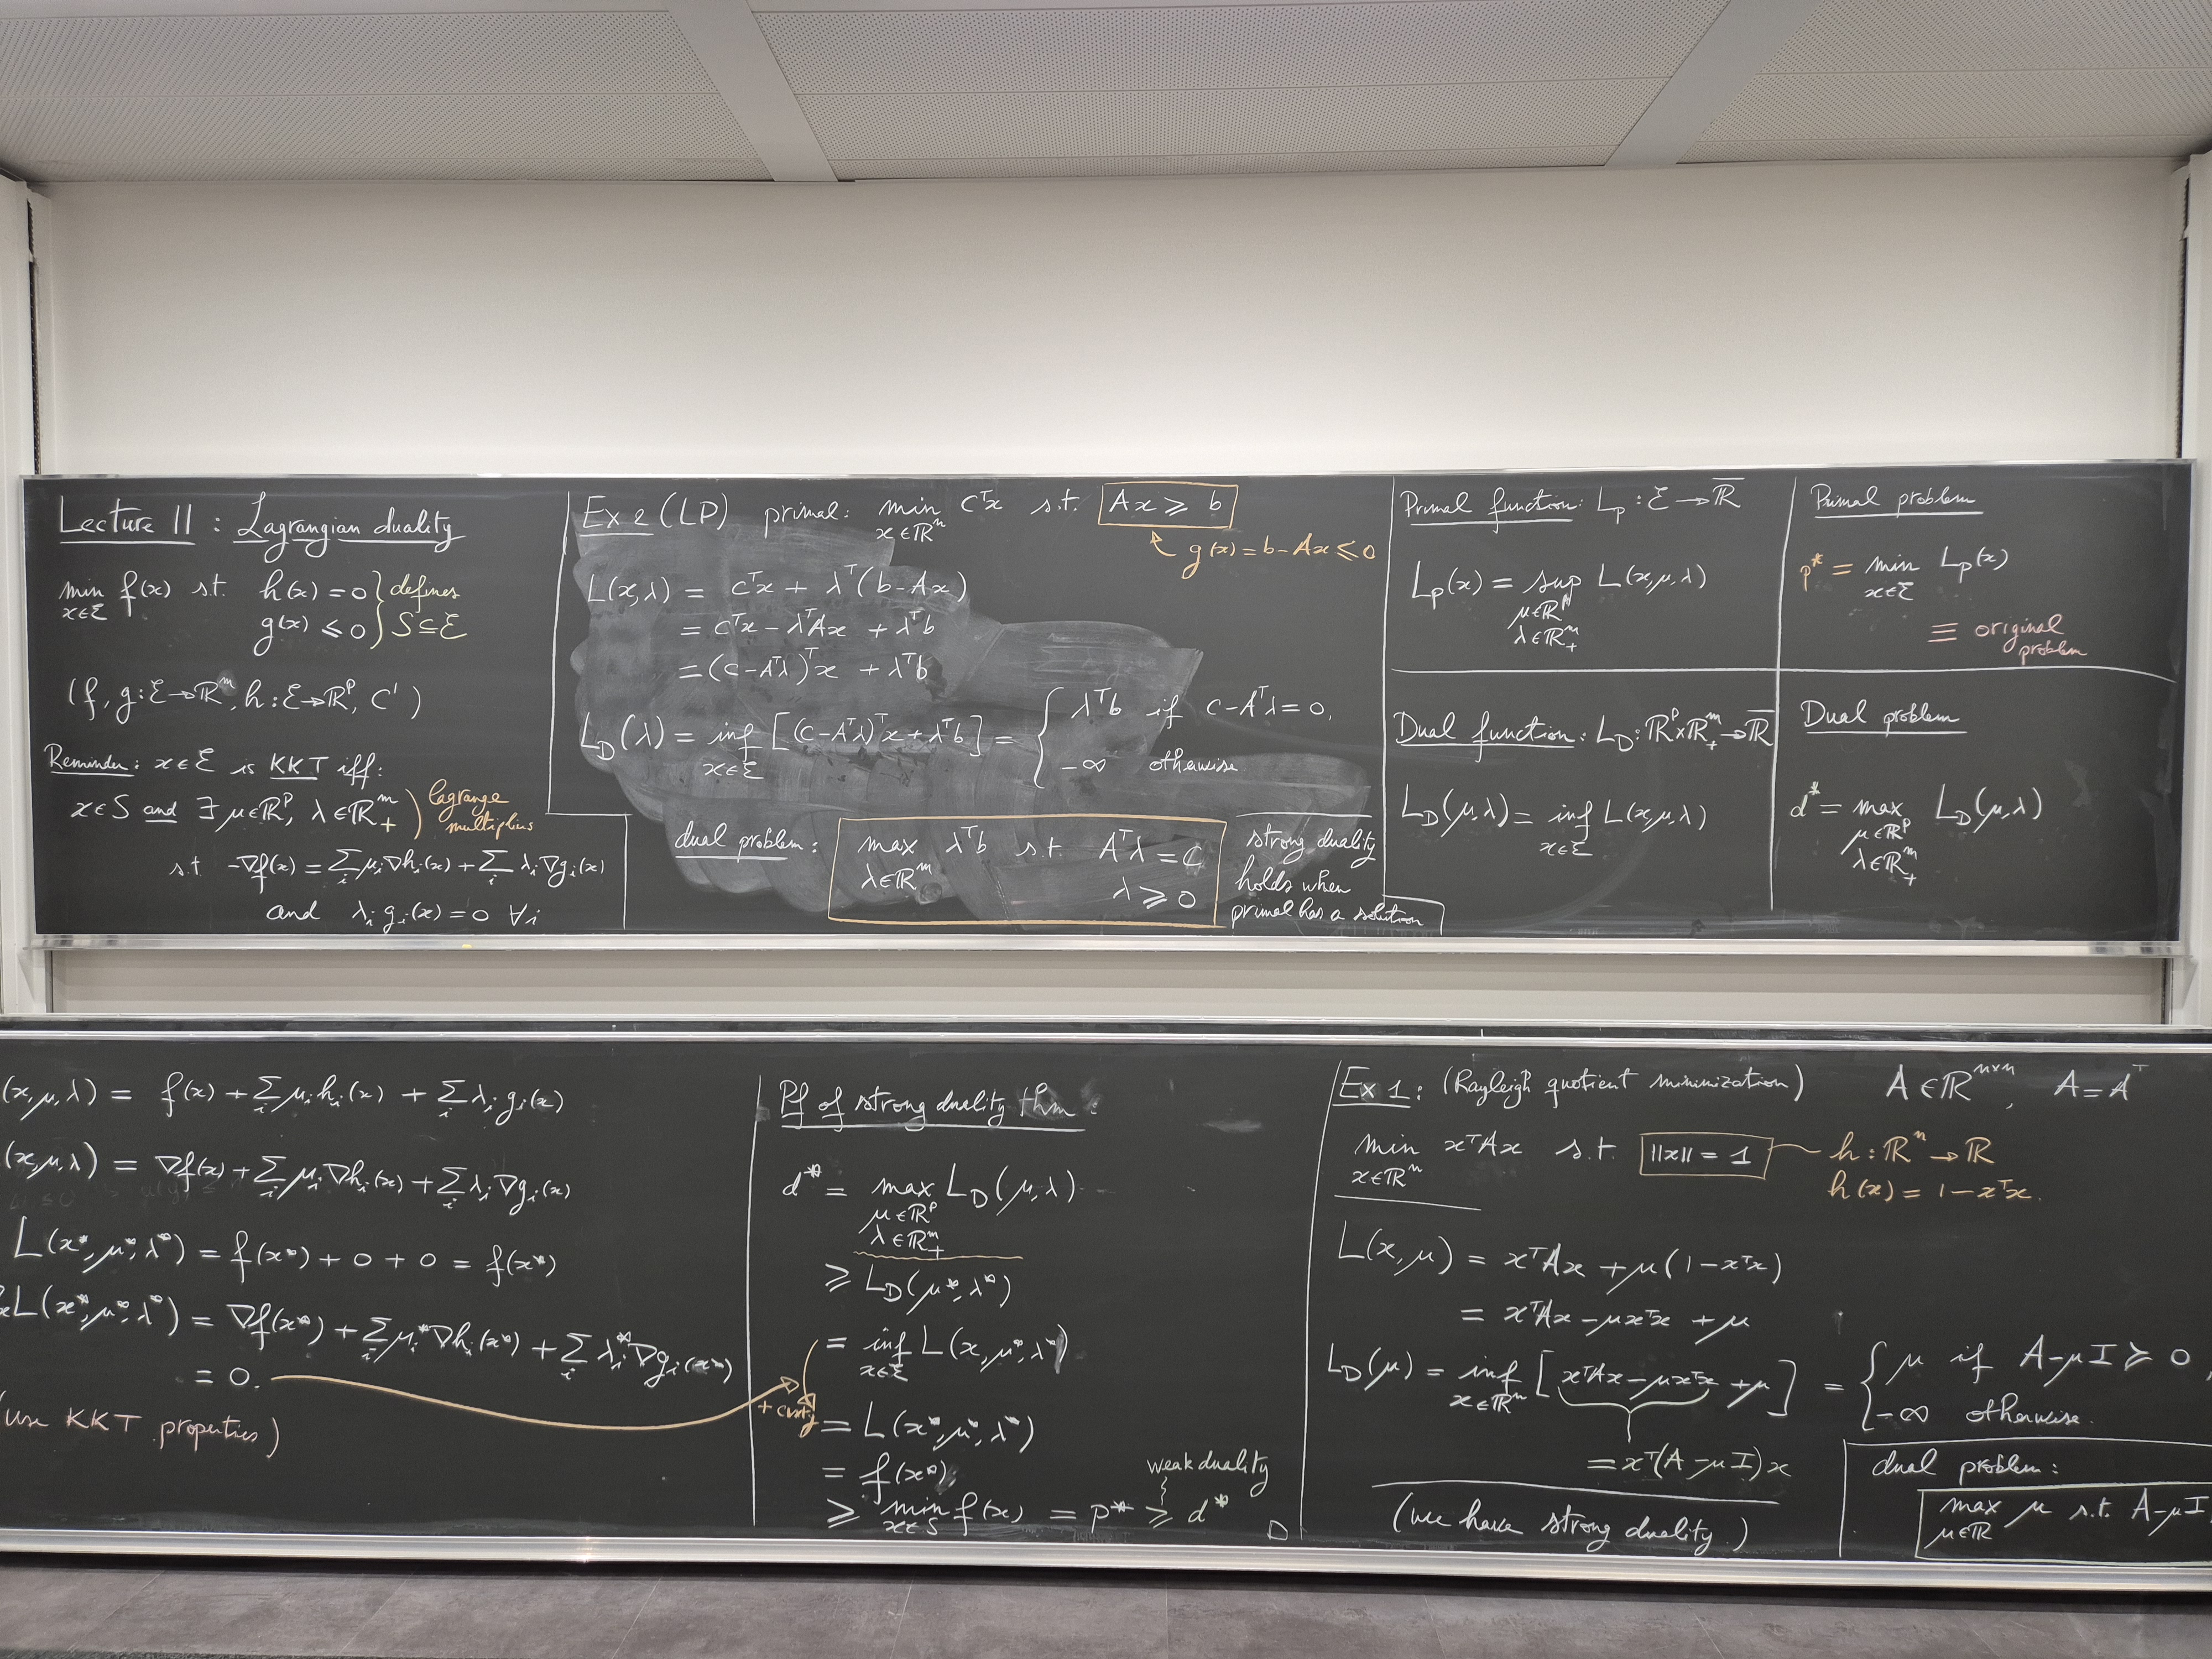 Lecture 11 : Lagrangian duality
min f(x) s.t. h(x) = 0 } defines
x∈ℰ g(x) ≤ 0 } S⊆ℰ
(f, g: ℰ→ℝᵐ, h: ℰ→ℝᵖ, C¹)
Reminder: x∈ℰ is KKT iff:
x∈S and ∃ μ∈ℝᵖ, λ∈ℝᵐ₊ ) Lagrange multipliers
s.t. -∇f(x) = ∑ᵢ μᵢ∇hᵢ(x) + ∑ᵢ λᵢ∇gᵢ(x)
and λᵢ gᵢ(x) = 0 ∀i
Ex 2 (LP) primal: min cᵀx s.t. Ax ≥ b
x∈ℝⁿ
g(x) = b-Ax ≤ 0
L(x,λ) = cᵀx + λᵀ(b-Ax)
= cᵀx - λᵀAx + λᵀb
= (c-Aᵀλ)ᵀx + λᵀb
L_D(λ) = inf [(c-Aᵀλ)ᵀx + λᵀb] = { λᵀb if c-Aᵀλ = 0,
x∈ℰ -∞ otherwise
dual problem: max λᵀb s.t. Aᵀλ = c
λ∈ℝᵐ λ ≥ 0
strong duality
holds when
primal has a solution
Primal function: L_P : ℰ → ℝ̄
L_P(x) = sup L(x,μ,λ)
μ∈ℝᵖ
λ∈ℝᵐ₊
Primal problem
p* = min L_P(x)
x∈ℰ
≡ original
problem
Dual function: L_D : ℝᵖ×ℝᵐ₊ → ℝ̄
L_D(μ,λ) = inf L(x,μ,λ)
x∈ℰ
Dual problem
d* = max L_D(μ,λ)
μ∈ℝᵖ
λ∈ℝᵐ₊
(x,μ,λ) = f(x) + ∑ᵢ μᵢhᵢ(x) + ∑ᵢ λᵢgᵢ(x)
(x,μ,λ) = ∇f(x) + ∑ᵢ μᵢ∇hᵢ(x) + ∑ᵢ λᵢ∇gᵢ(x)
L(x*,μ*,λ*) = f(x*) + 0 + 0 = f(x*)
ₓL(x*,μ*,λ*) = ∇f(x*) + ∑ᵢ μᵢ*∇hᵢ(x*) + ∑ᵢ λᵢ*∇gᵢ(x*)
= 0.
(use KKT properties)
Pf of strong duality thm:
d* = max L_D(μ,λ)
μ∈ℝᵖ
λ∈ℝᵐ₊
≥ L_D(μ*,λ*)
= inf L(x,μ*,λ*)
x∈ℰ
= L(x*,μ*,λ*)
= f(x*)
≥ min f(x) = p* ≥ d*
x∈S
weak duality
□
Ex 1: (Rayleigh quotient minimization) A∈ℝⁿˣⁿ, A = Aᵀ
min xᵀAx s.t. ||x|| = 1
x∈ℝⁿ
h : ℝⁿ → ℝ
h(x) = 1-xᵀx.
L(x,μ) = xᵀAx + μ(1-xᵀx)
= xᵀAx - μxᵀx + μ
L_D(μ) = inf [xᵀAx - μxᵀx + μ] = { μ if A-μI ≽ 0,
x∈ℝⁿ -∞ otherwise.
= xᵀ(A-μI)x
(we have strong duality.)
dual problem:
max μ s.t. A-μI
μ∈ℝ